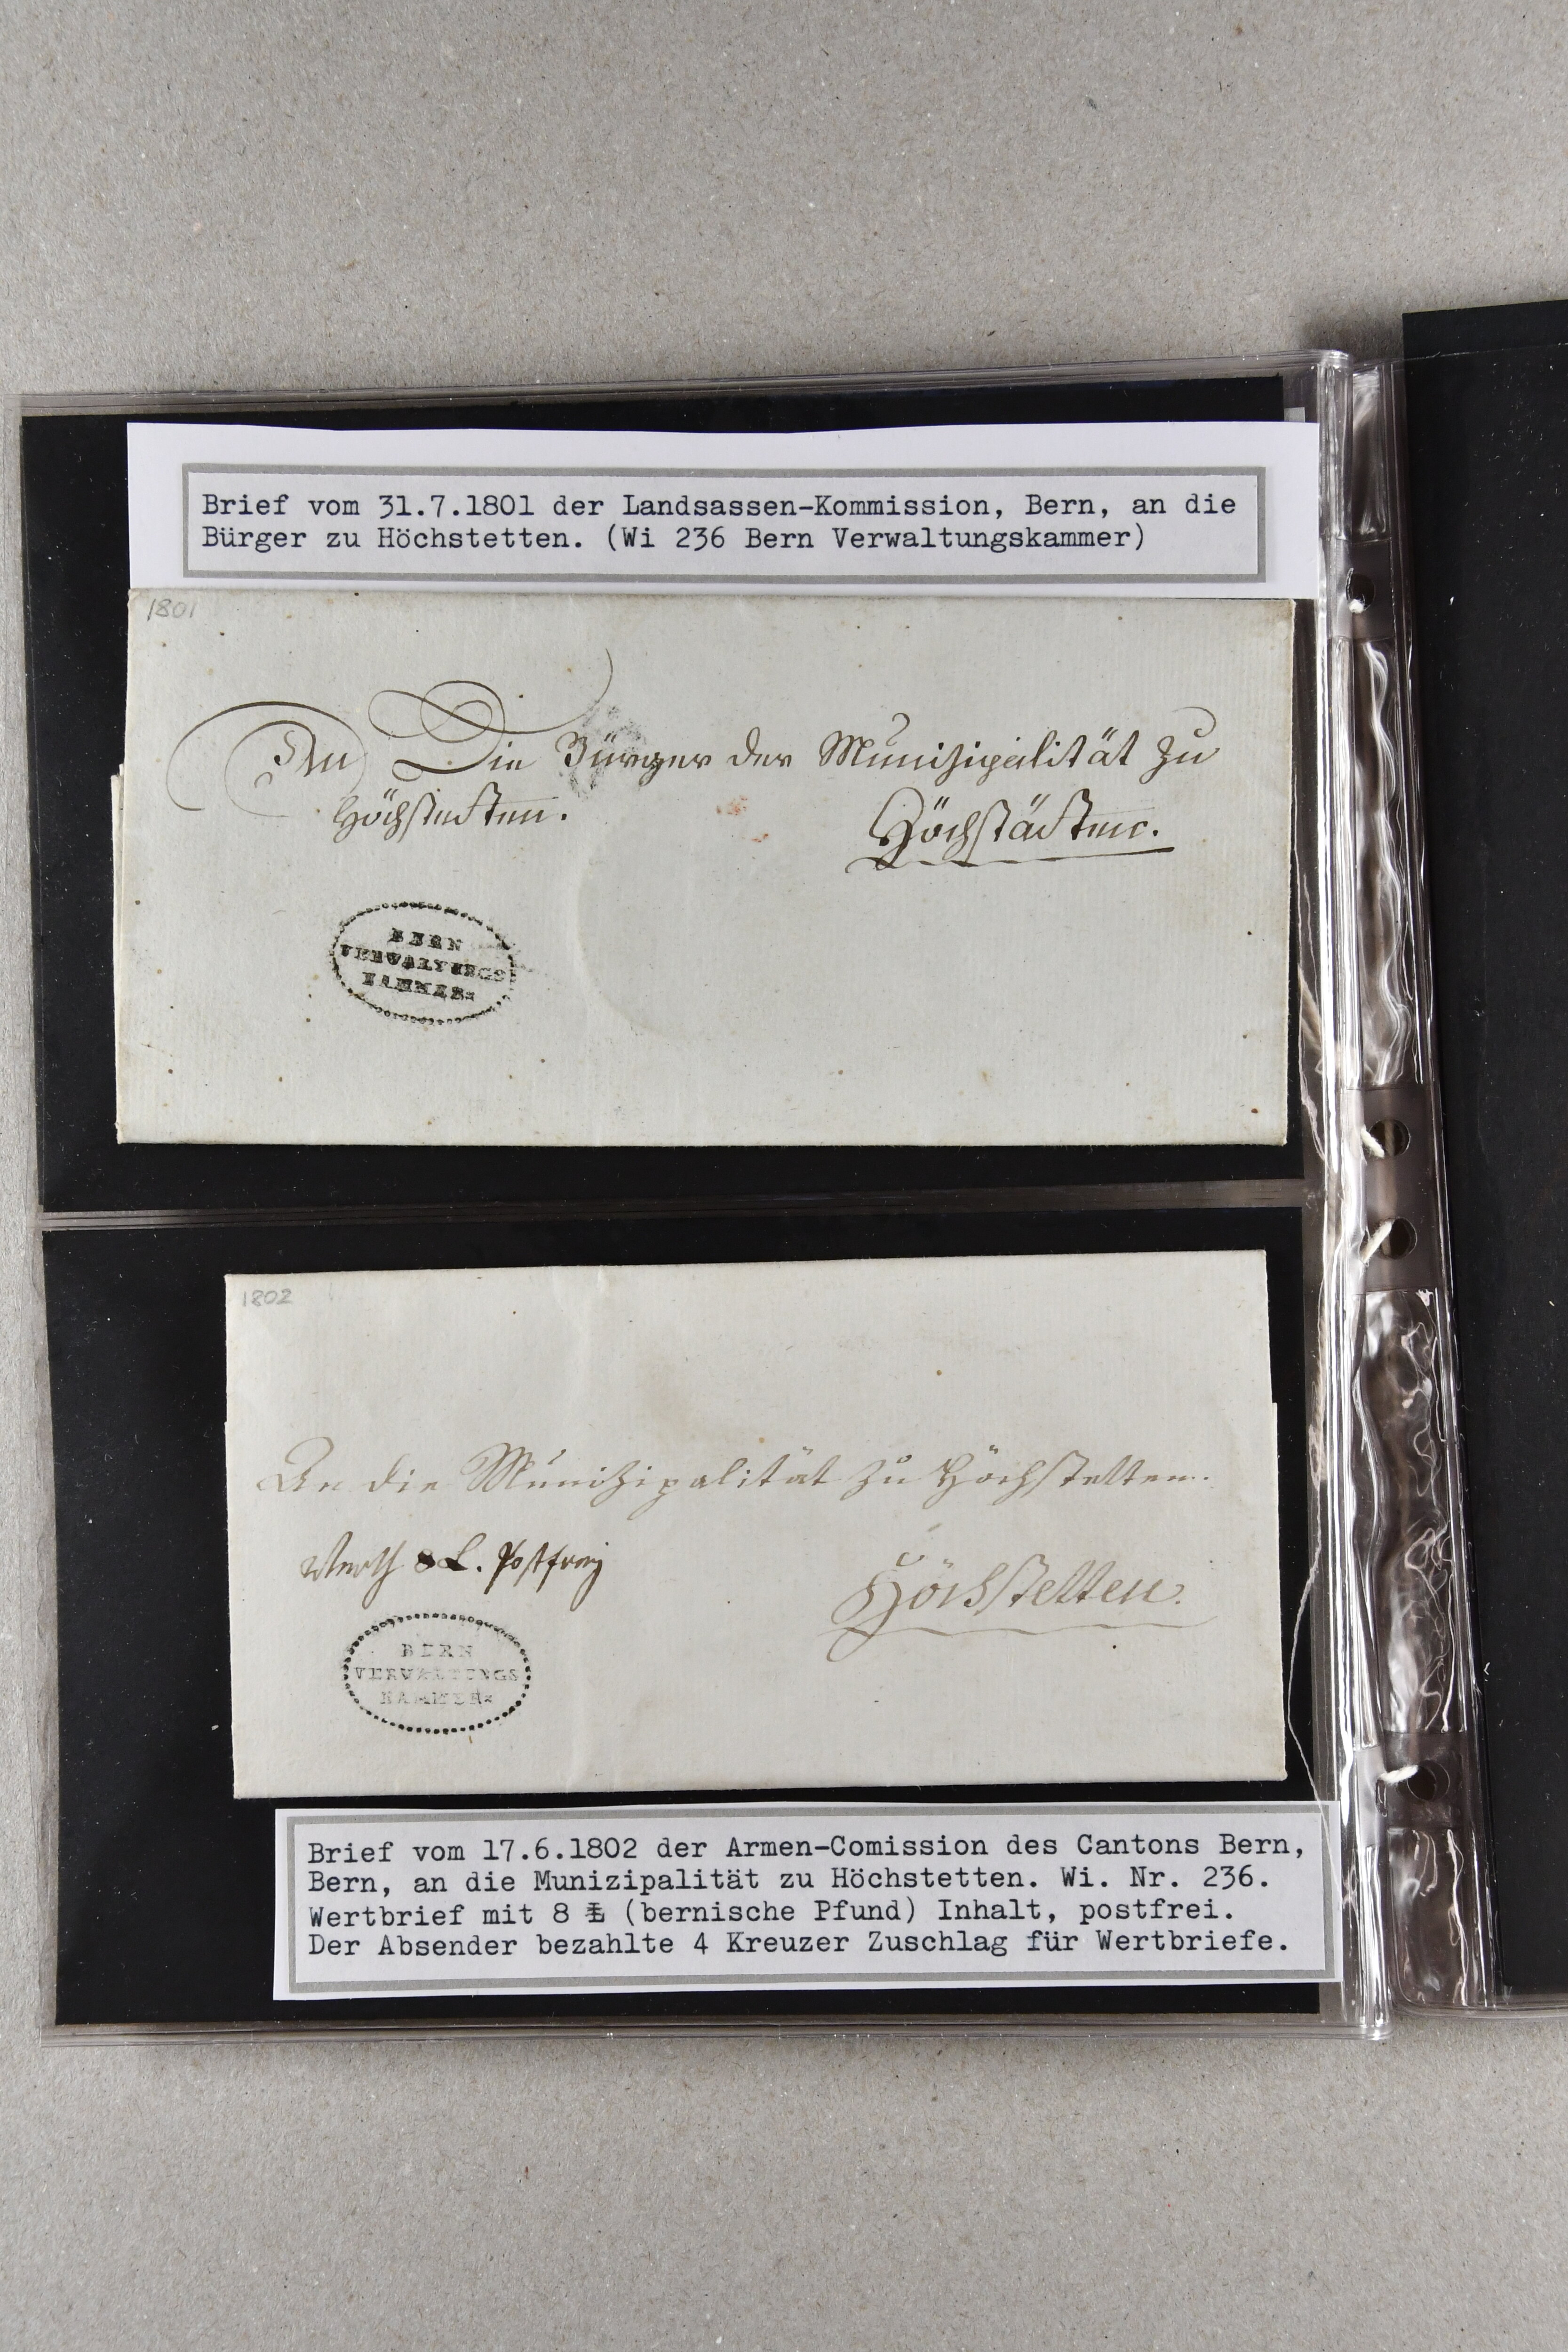 Brief vom 31.7.1801 der Landsassen-Kommission, Bern, an die
Bürger zu Höchstetten. (Wi 236 Bern Verwaltungskammer)
1801
An Die Bürger der Munizipalität zu
Höchstetten.
Höchstätten.
BERN
VERWALTUNGS
KAMMER
1802
An die Munizipalität zu Höchstetten.
Werth 8 L. Postfrey
Höchstetten.
BERN
VERWALTUNGS
KAMMER
Brief vom 17.6.1802 der Armen-Comission des Cantons Bern,
Bern, an die Munizipalität zu Höchstetten. Wi. Nr. 236.
Wertbrief mit 8 Ł (bernische Pfund) Inhalt, postfrei.
Der Absender bezahlte 4 Kreuzer Zuschlag für Wertbriefe.